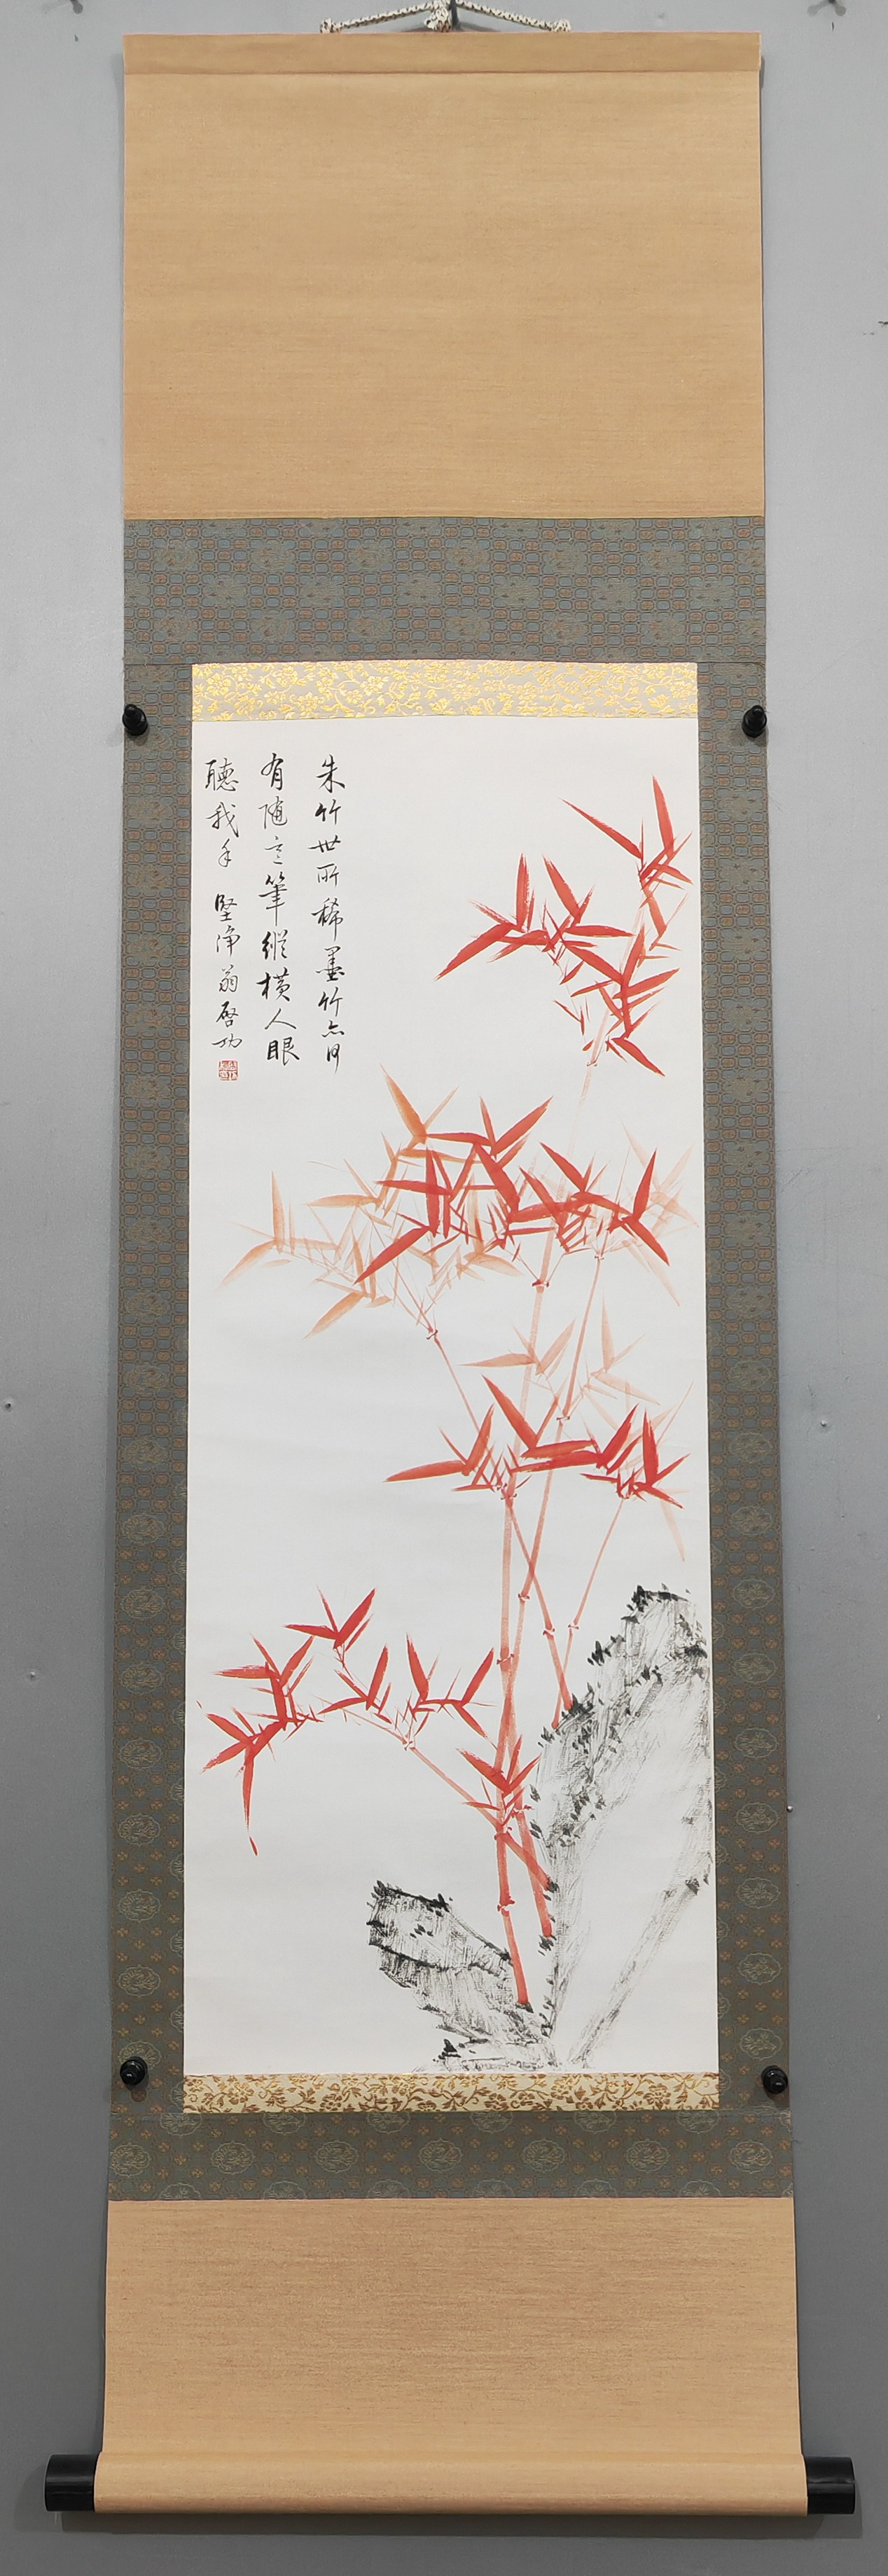 朱竹世所稀墨竹亦何
有随意筆縱橫人眼
聽我手 堅净翁啓功